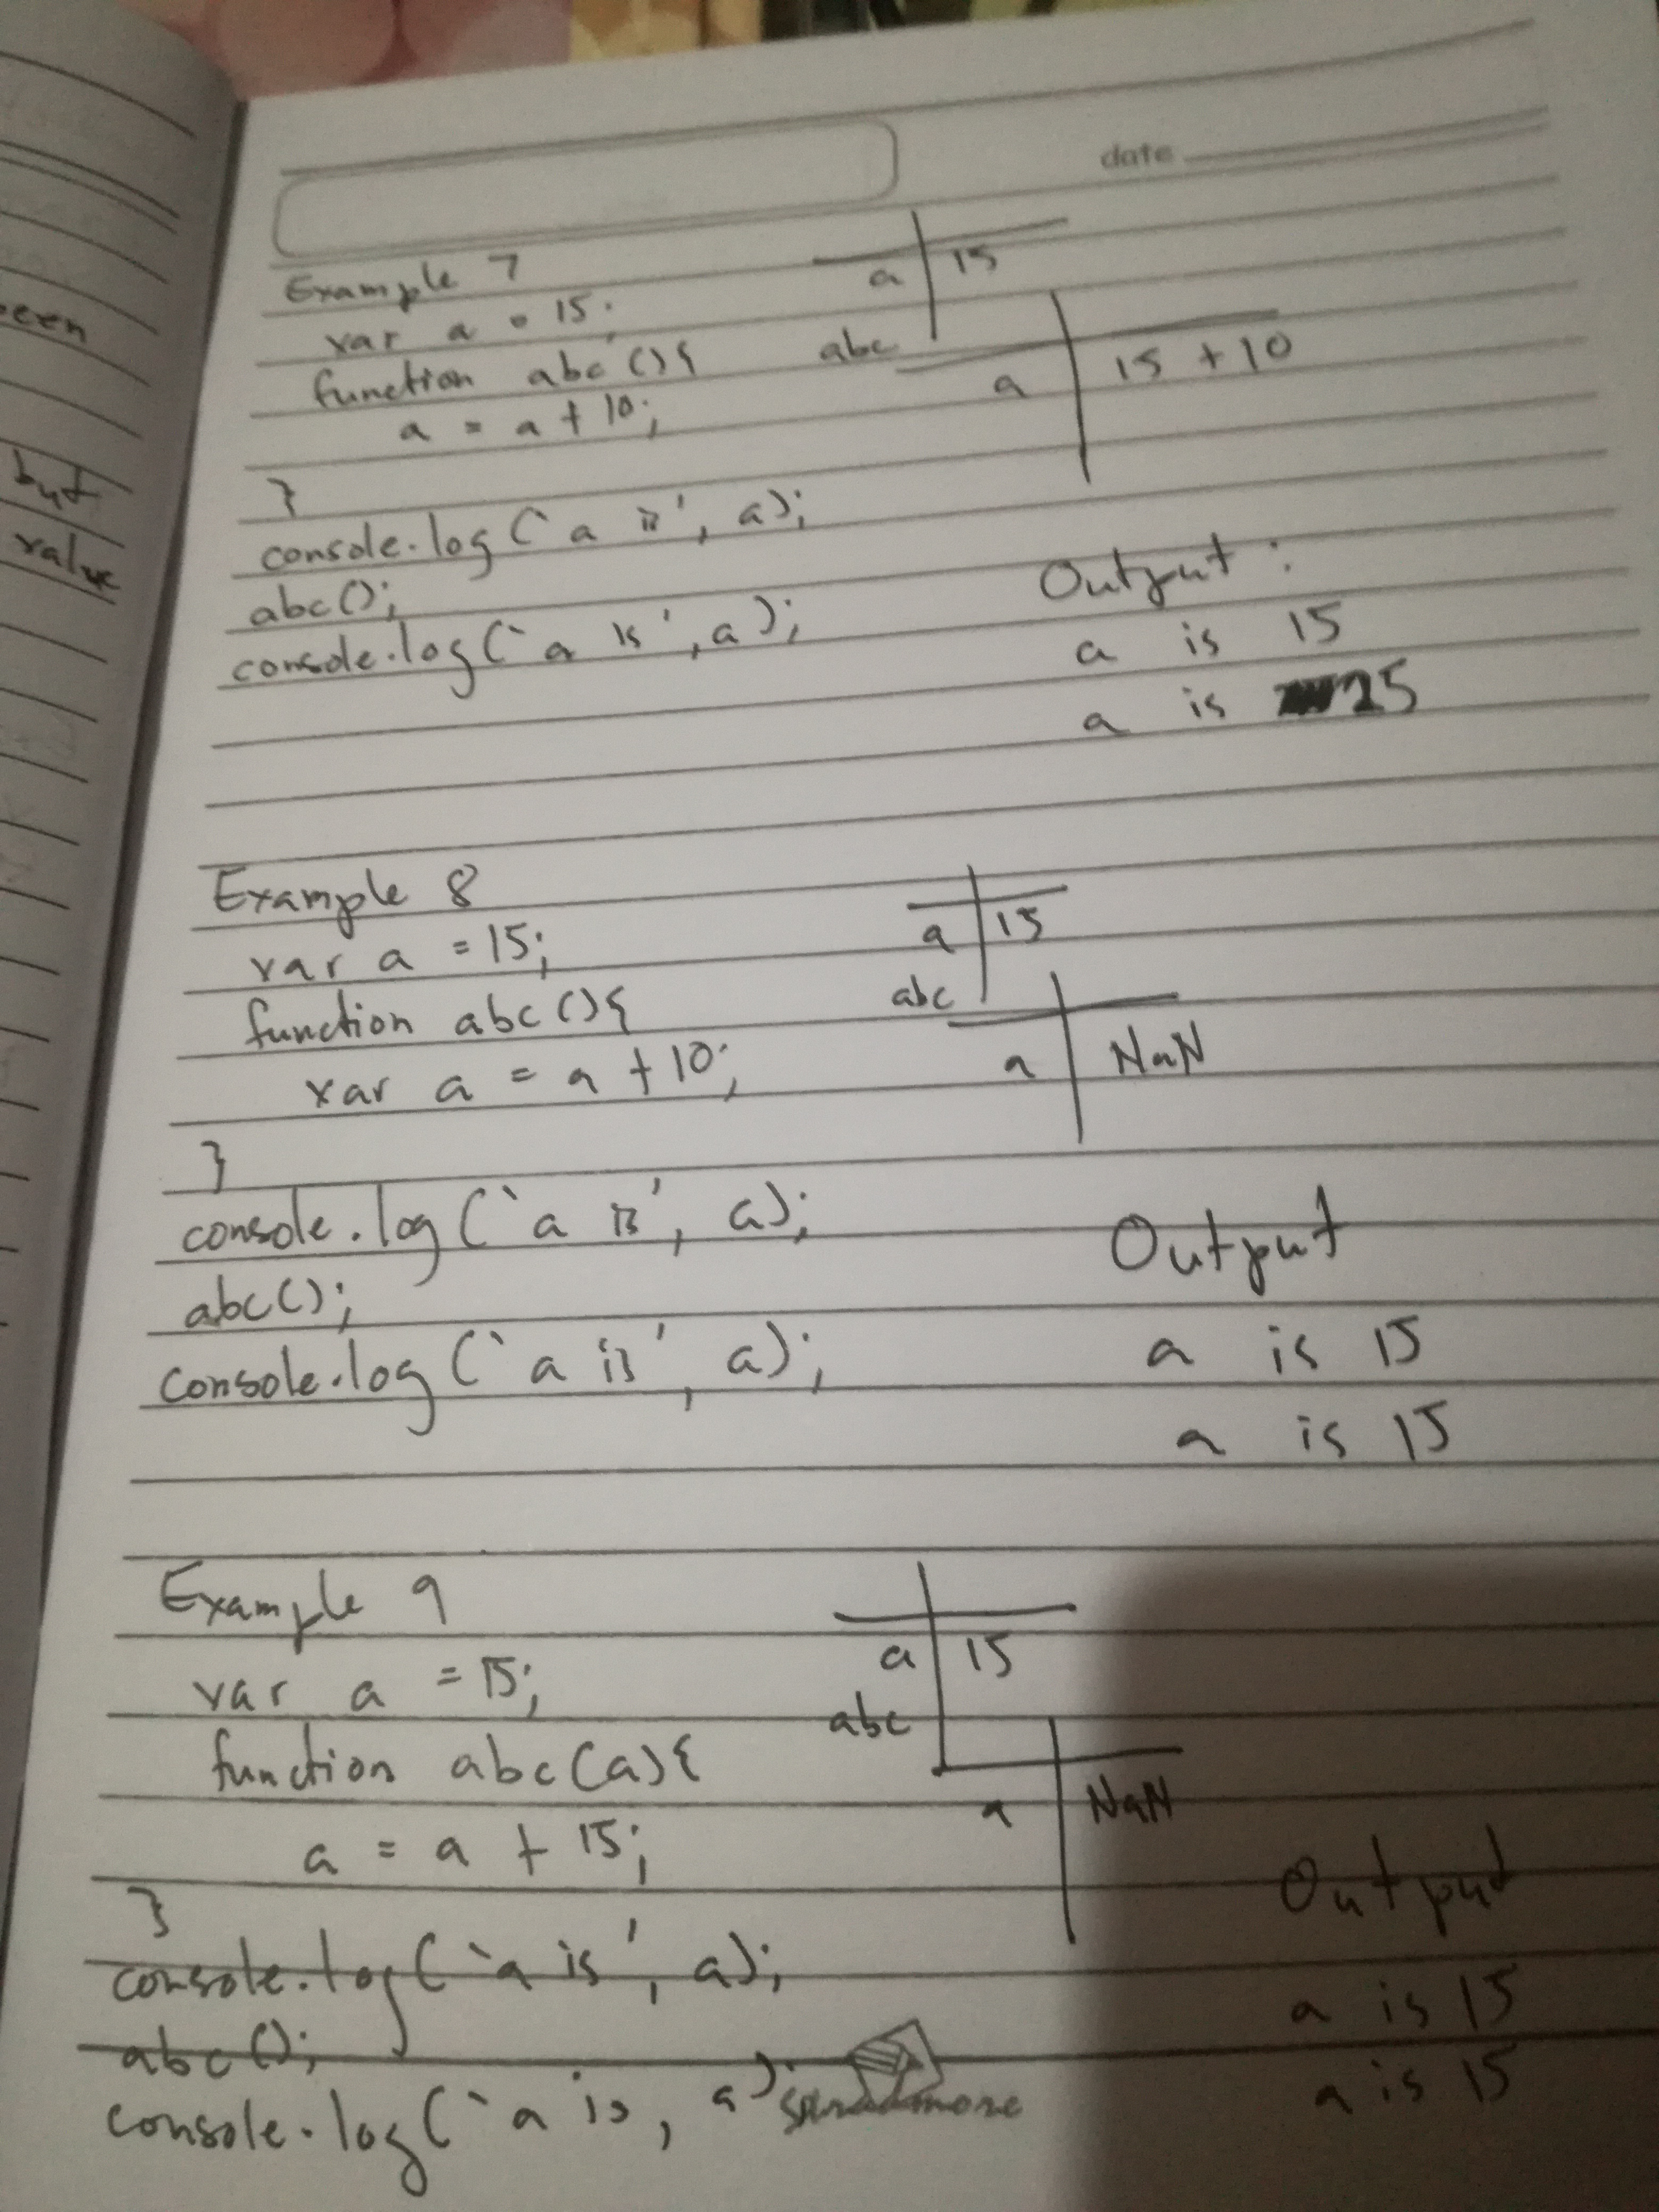 been
but
value
date
Example 7
var a = 15;
function abc(){
a = a + 10;
}
console.log(`a is', a);
abc();
console.log(`a is', a);
a 15
abc
a 15 + 10
Output :
a is 15
a is 25
Example 8
var a = 15;
function abc(){
var a = a + 10;
}
console.log(`a is', a);
abc();
console.log(`a is', a);
a 15
abc
a NaN
Output
a is 15
a is 15
Example 9
var a = 15;
function abc(a){
a = a + 15;
}
console.log(`a is', a);
abc();
console.log(`a is, a)
a 15
abc
a NaN
Output
a is 15
a is 15